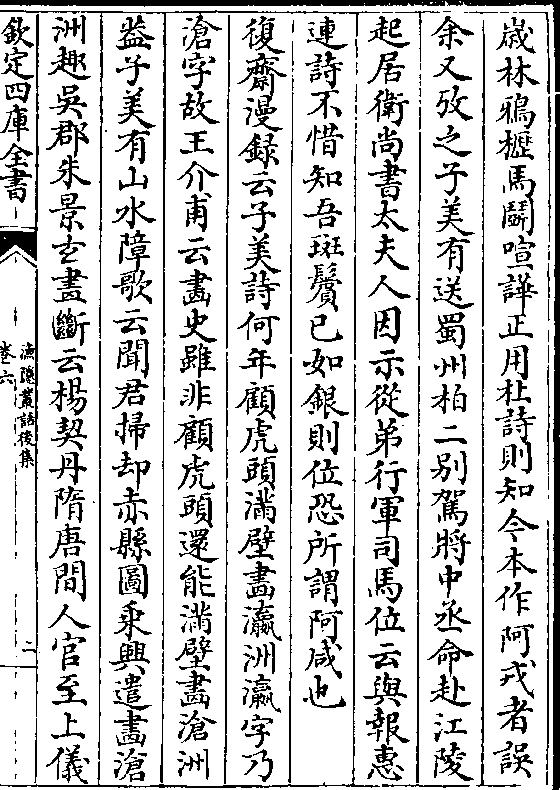 歲林鵶櫪馬鬬喧譁正用杜詩則知今本作阿戎者誤
余又攷之子美有送蜀州柏二别駕將中丞命赴江陵
起居衛尚書太夫人因示從弟行軍司馬位云與報惠
連詩不惜知吾斑鬢已如銀則位恐所謂阿咸也
復齋漫録云子美詩何年顧虎頭滿壁畫瀛洲瀛字乃
滄字故王介甫云畫史雖非顧虎頭還能滿壁畫滄洲
葢子美有山水障歌云聞君掃却赤縣圖乘興遣畫滄
洲趣吳郡朱景𤣥畫斷云楊契丹隋唐間人官至上儀
欽定四庫全書
漁隱叢話後集
卷六
二